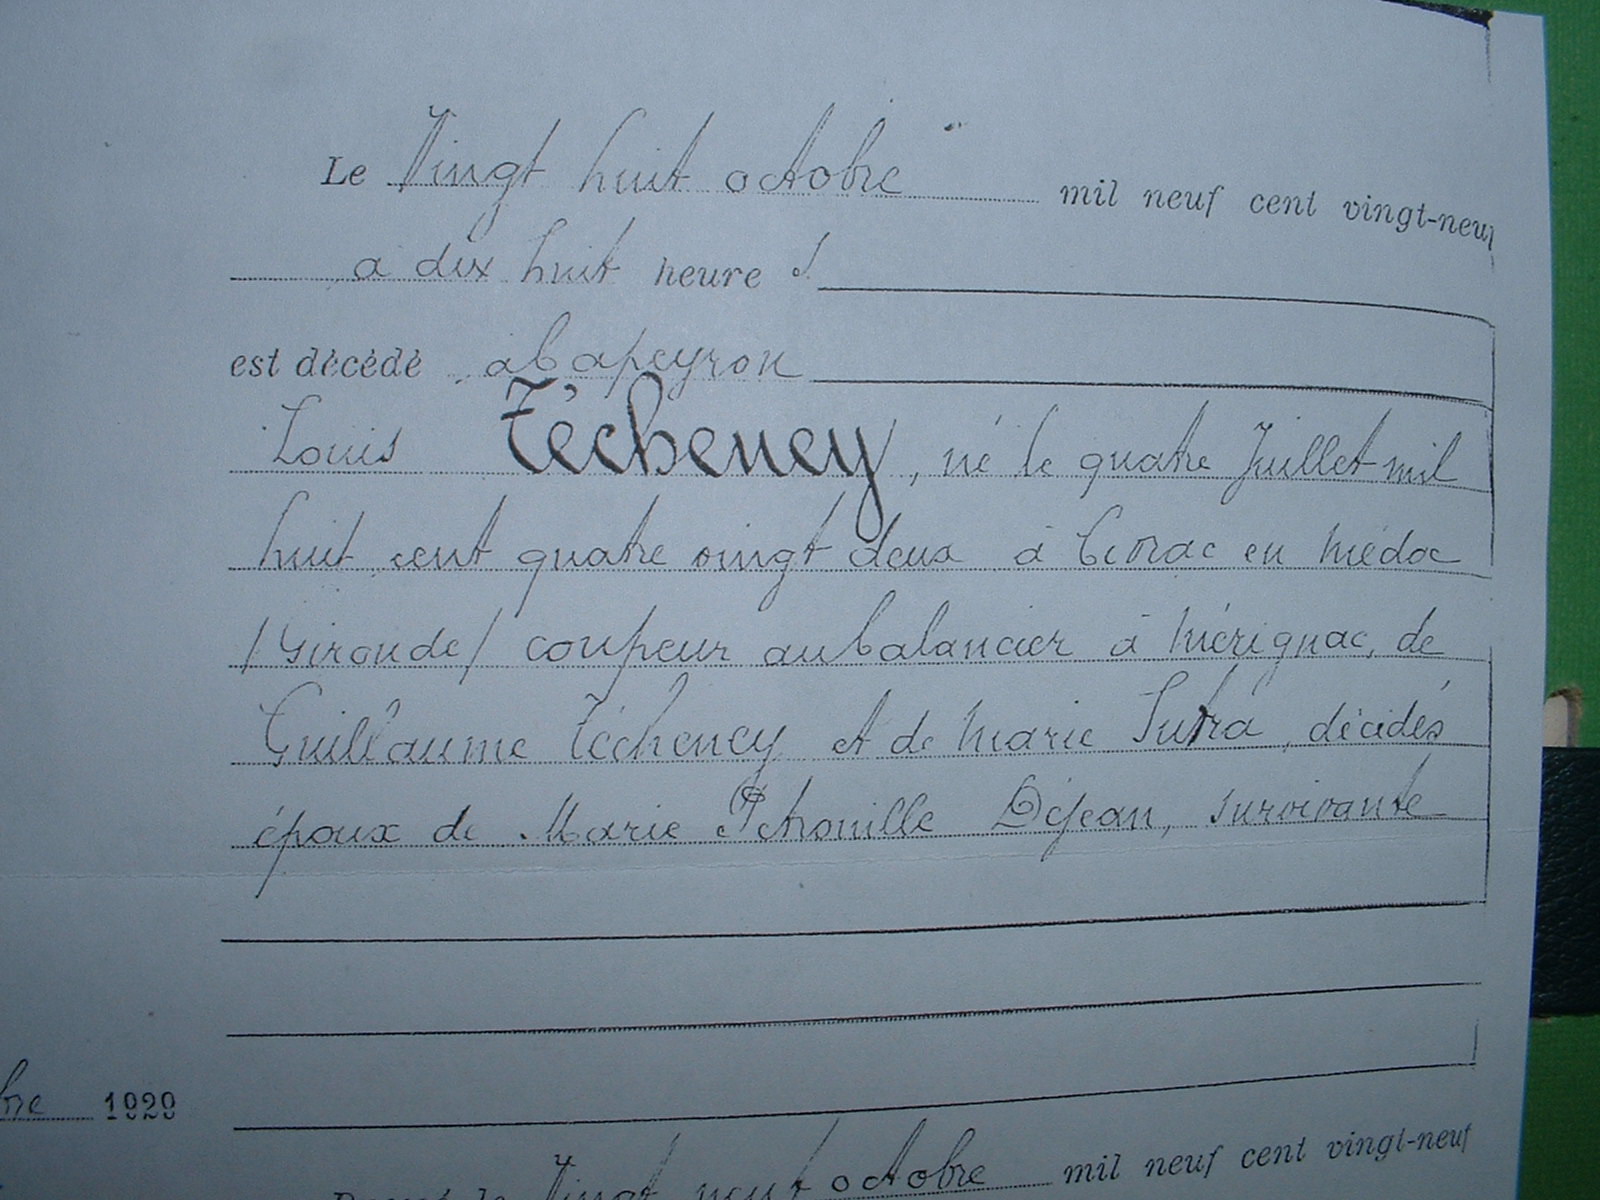 Le Vingt huit octobre mil neuf cent vingt-neuf
a dix huit heure s
est décédé à Capeyron
Louis Técheney, né le quatre Juillet mil
huit cent quatre vingt deux à Civrac en Médoc
/Gironde/ coupeur au balancier à Mérignac, de
Guillaume Técheney et de Marie Sutra, décédés
époux de Marie Pétronille Déjean, survivante
bre 1929
le Vingt neuf octobre mil neuf cent vingt-neuf